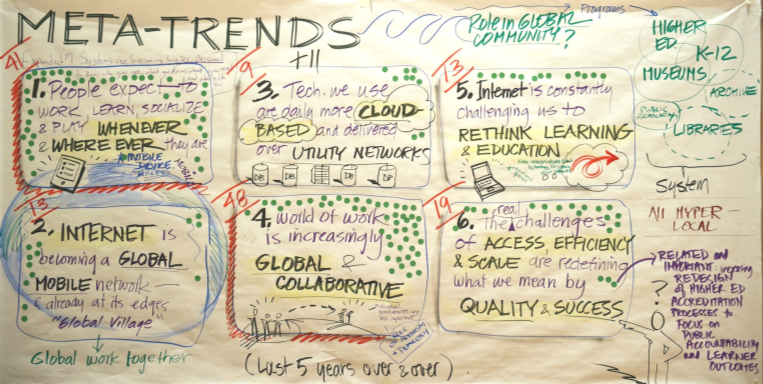 META-TRENDS
+11
Role in GLOBAL
COMMUNITY?
Programs
HIGHER
ED.
K-12
MUSEUMS
ARCHIVE
LIBRARIES
System
All HYPER-
LOCAL
41
1. People expect to
WORK, LEARN, SOCIALIZE
& PLAY WHENEVER
& WHEREVER they are
MOBILE
DEVICE
9
3. Tech. we use
are daily more CLOUD-
BASED and delivered
over UTILITY NETWORKS
DB
DB
DB
DB
13
5. Internet is constantly
challenging us to
RETHINK LEARNING
& EDUCATION
13
2. INTERNET is
becoming a GLOBAL
MOBILE network —
& already at its edges
"Global Village"
Global work together
48
4. World of work
is increasingly
GLOBAL &
COLLABORATIVE
(Last 5 years over & over)
19
6. The real challenges
of ACCESS, EFFICIENCY
& SCALE are redefining
what we mean by
QUALITY & SUCCESS
RELATED and
IMPORTANT: increasing
REDESIGN
of HIGHER ED
ACCREDITATION
PROCESSES to
FOCUS on
PUBLIC
ACCOUNTABILITY
and LEARNER
OUTCOMES
?